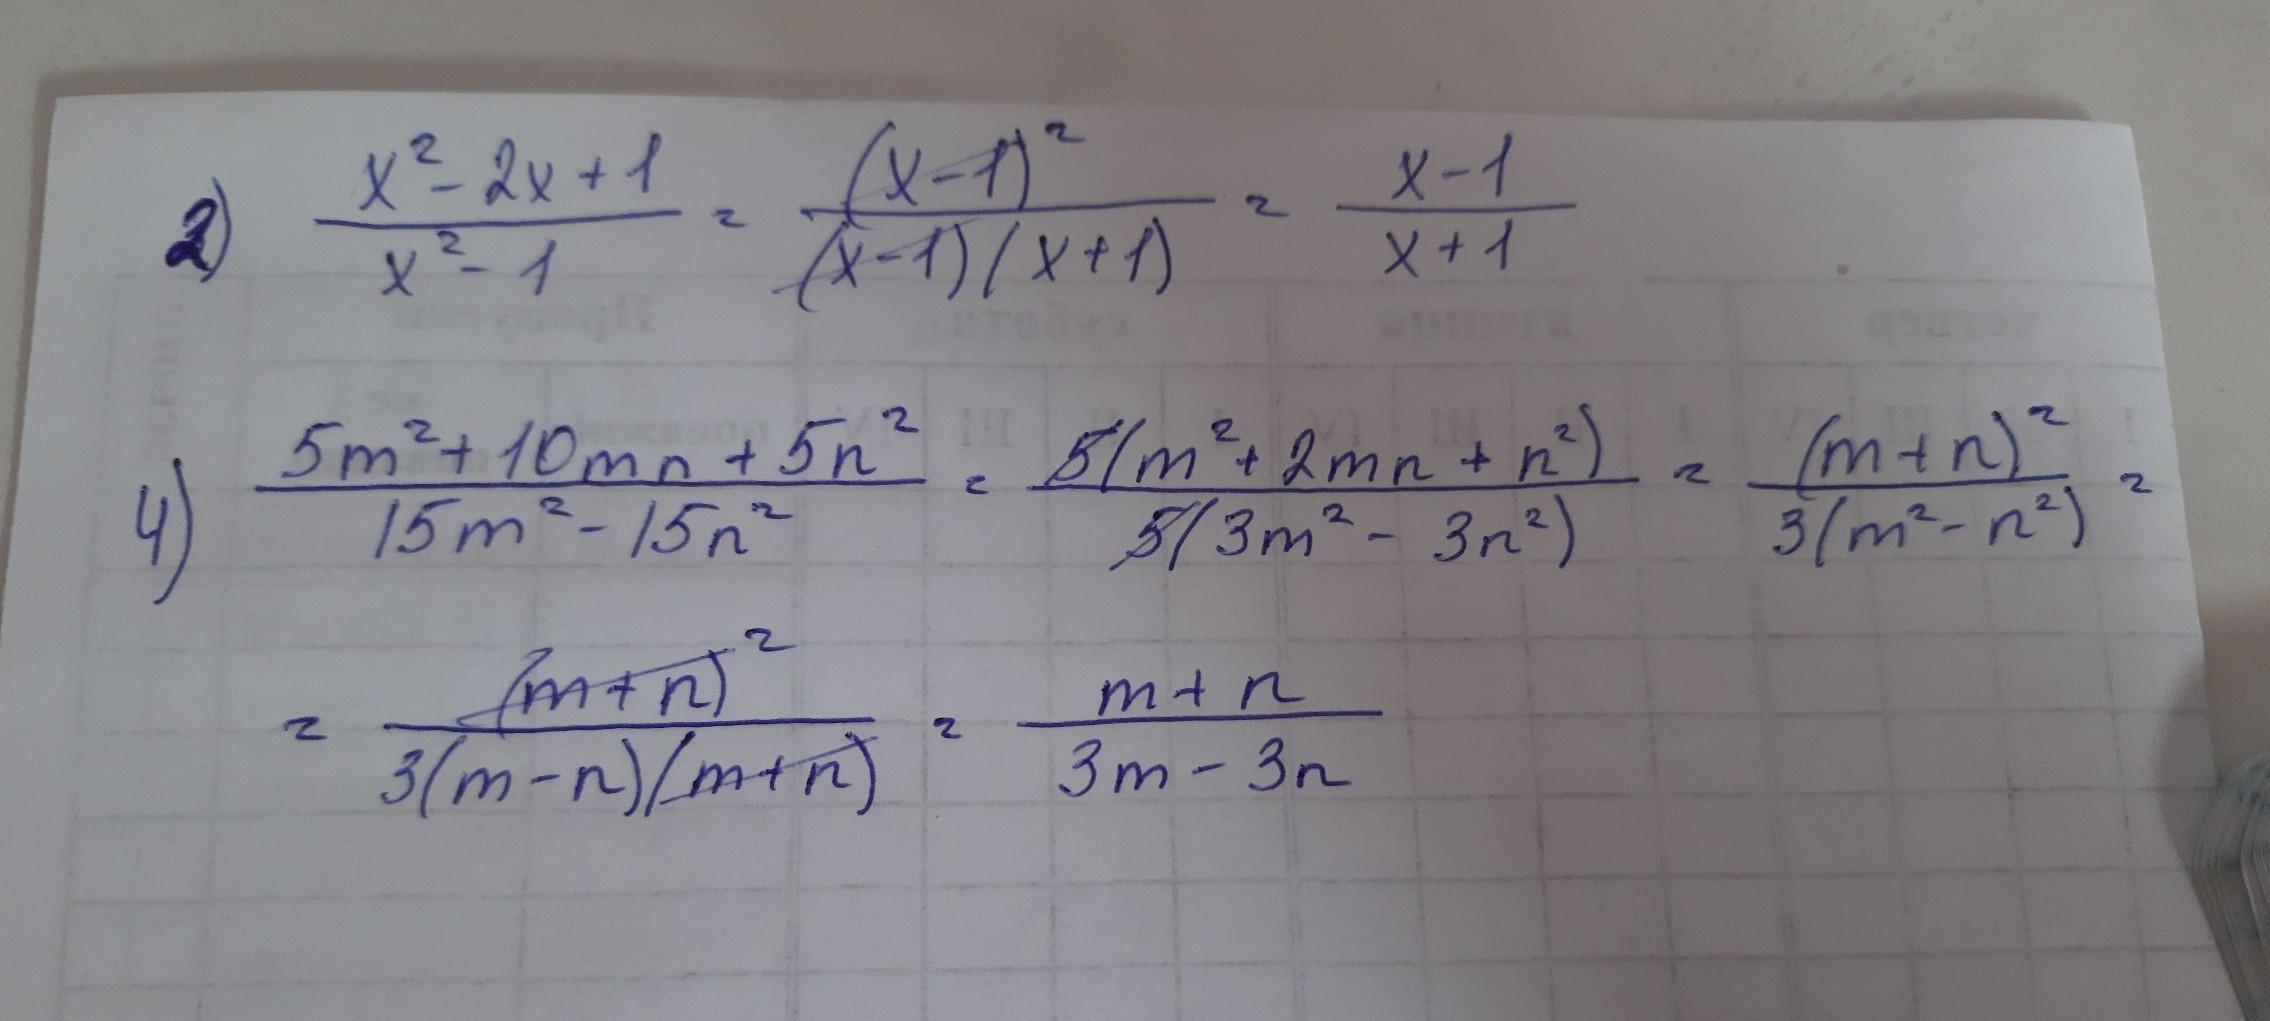 2) (x² - 2x + 1)/(x² - 1) = (x - 1)²/((x - 1)(x + 1)) = (x - 1)/(x + 1)
4) (5m² + 10mn + 5n²)/(15m² - 15n²) = 5(m² + 2mn + n²)/(5(3m² - 3n²)) = (m + n)²/(3(m² - n²)) =
= (m + n)²/(3(m - n)(m + n)) = (m + n)/(3m - 3n)